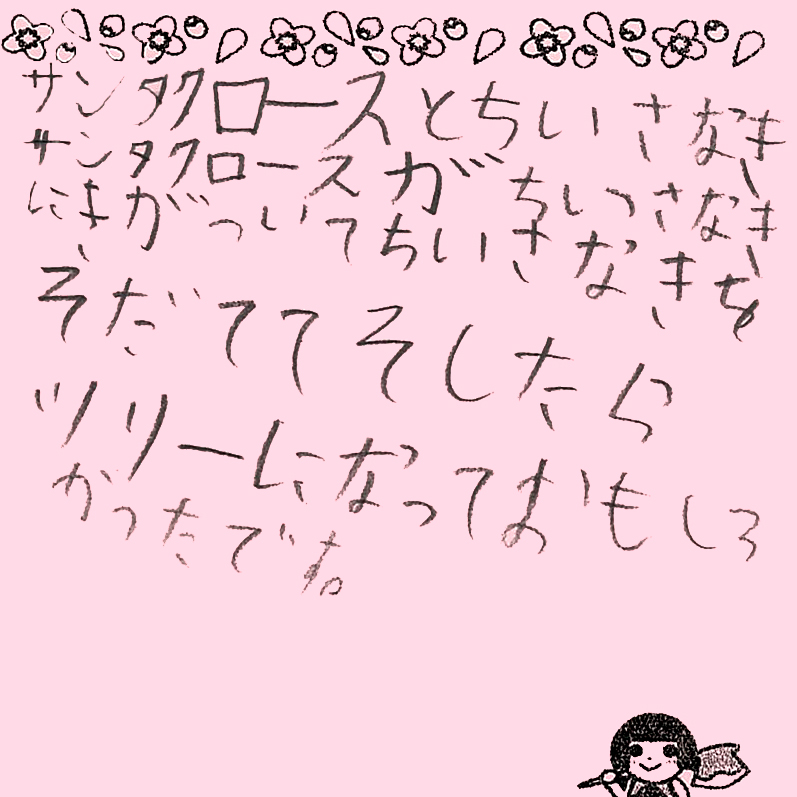 サンタクロースとちいさなき
サンタクロースがちいっさなき
にきがついてちいさなきを
そだててそしたら
ツリーになっておもしろ
かったです。